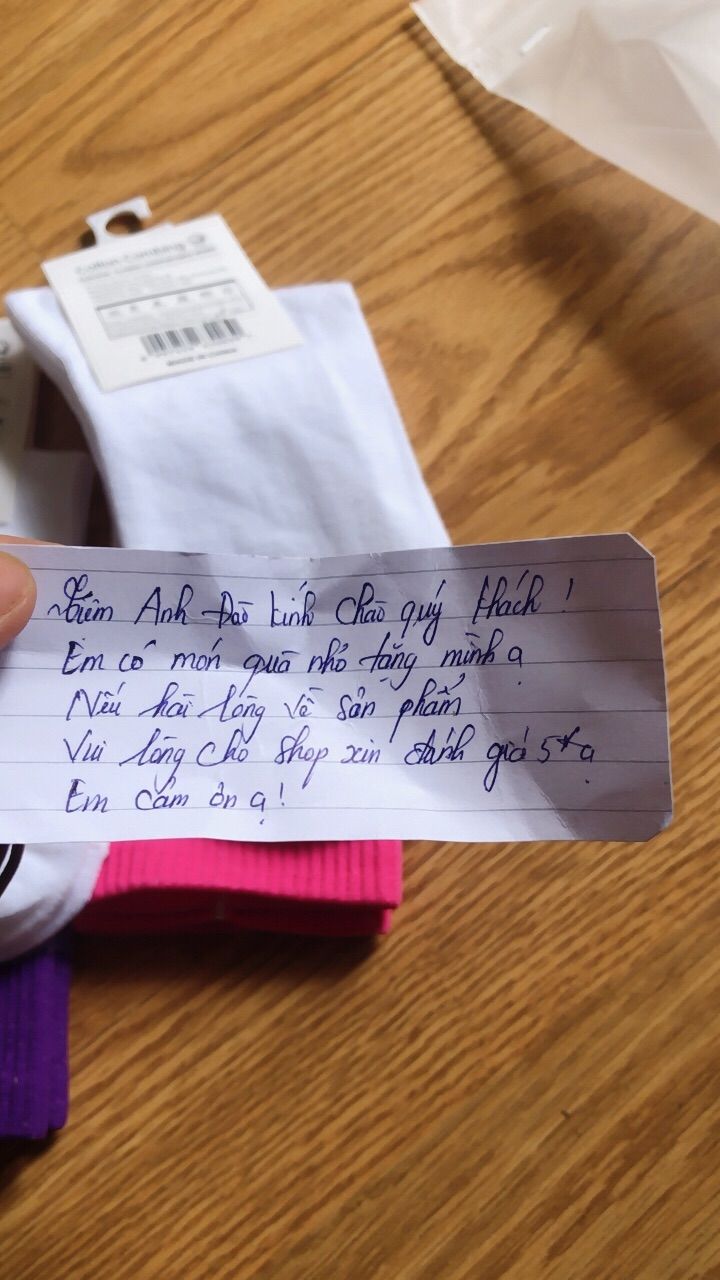 Cotton Combing
MADE IN CHINA
Tiệm Anh Đào kính chào quý khách !
Em có món quà nhỏ tặng mình ạ
Nếu hài lòng về sản phẩm
Vui lòng cho shop xin đánh giá 5* ạ
Em cảm ơn ạ !